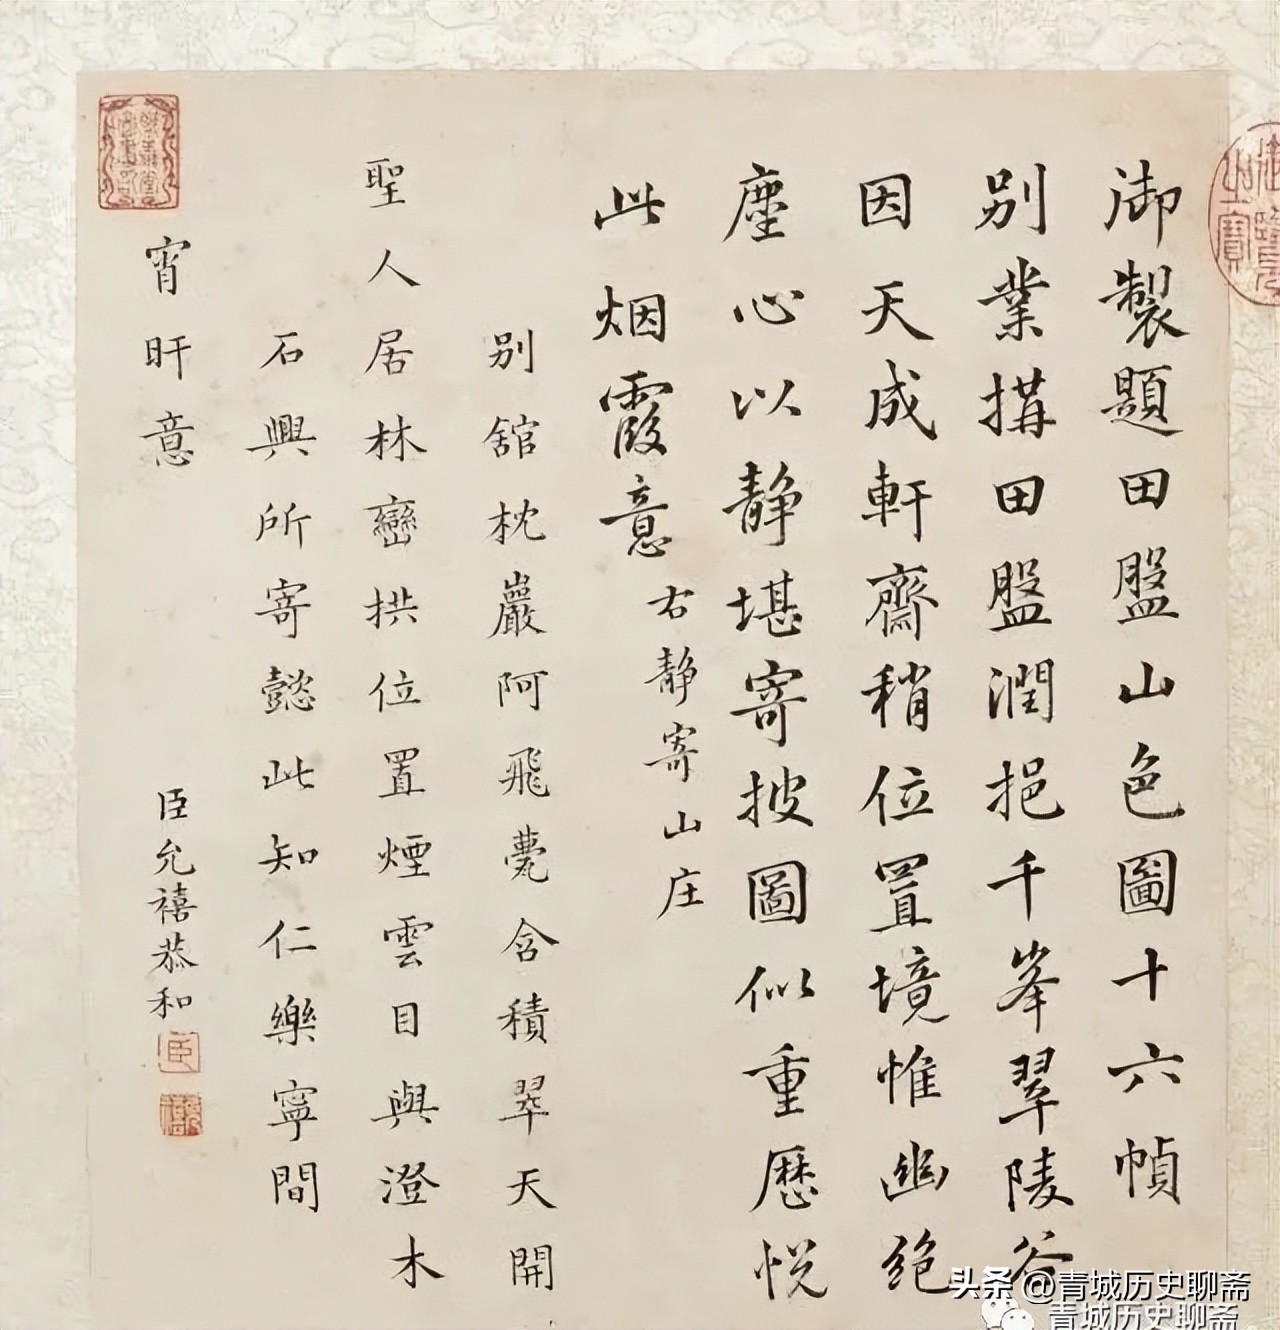 御製題田盤山色圖十六幀
别業搆田盤潤挹千峯翠陵谷
因天成軒齋稍位置境惟幽絶
塵心以静堪寄披圖似重歷悦
此烟霞意
右静寄山庄
别舘枕巖阿飛甍含積翠天開
聖人居林巒拱位置煙雲目與澄木
石興所寄懿此知仁樂寧間
宵旰意
臣允禧恭和
臣
頭条 @青城历史聊斋
青城历史聊斋